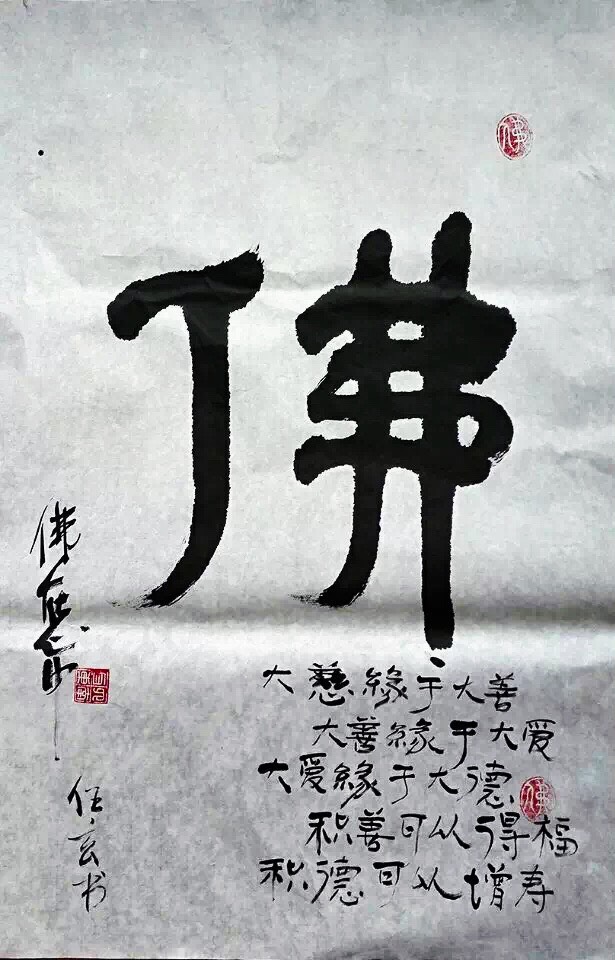 佛
佛在心中
大慈緣于大善
大善緣于大爱
大爱緣于大德
积善可以得福
积德可以增寿
任玄书